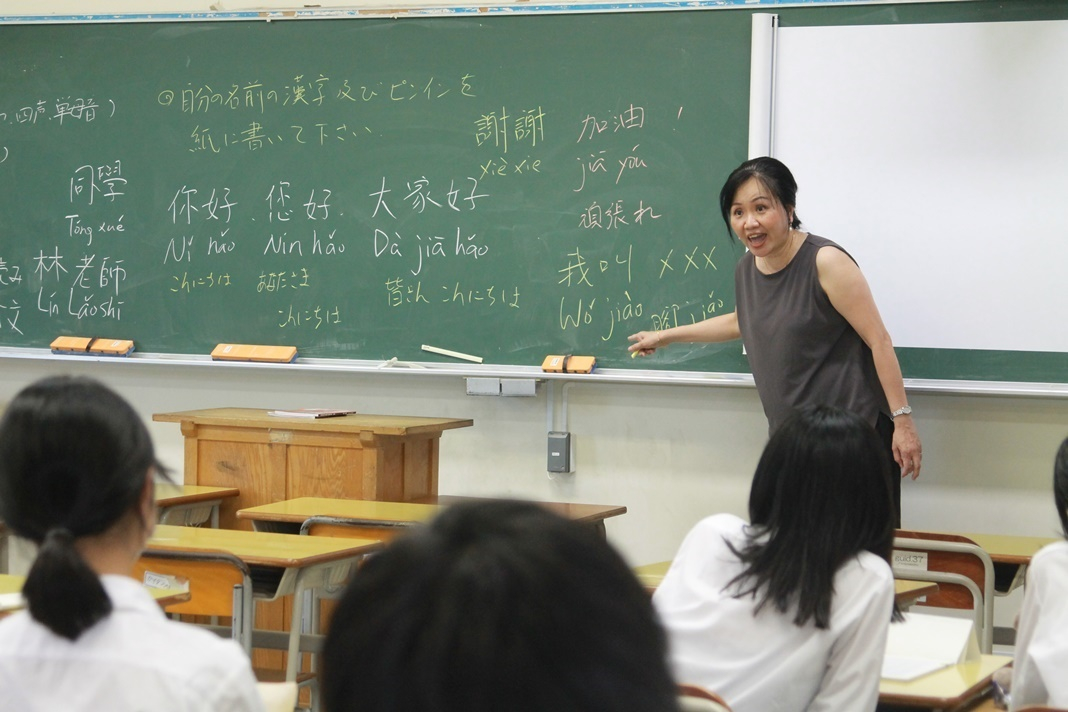 四声、単母音)
◎自分の名前の漢字及びピンインを
紙に書いて下さい
謝謝
xiè xie
加油!
jiā yóu
頑張れ
同學
Tóng xué
林老師
Lín Lǎoshī
你好.
Nǐ hǎo
こんにちは
您好.
Nín hǎo
あなたさま
こんにちは
大家好
Dà jiā hǎo
皆さん こんにちは
我叫 XXX
Wǒ jiào